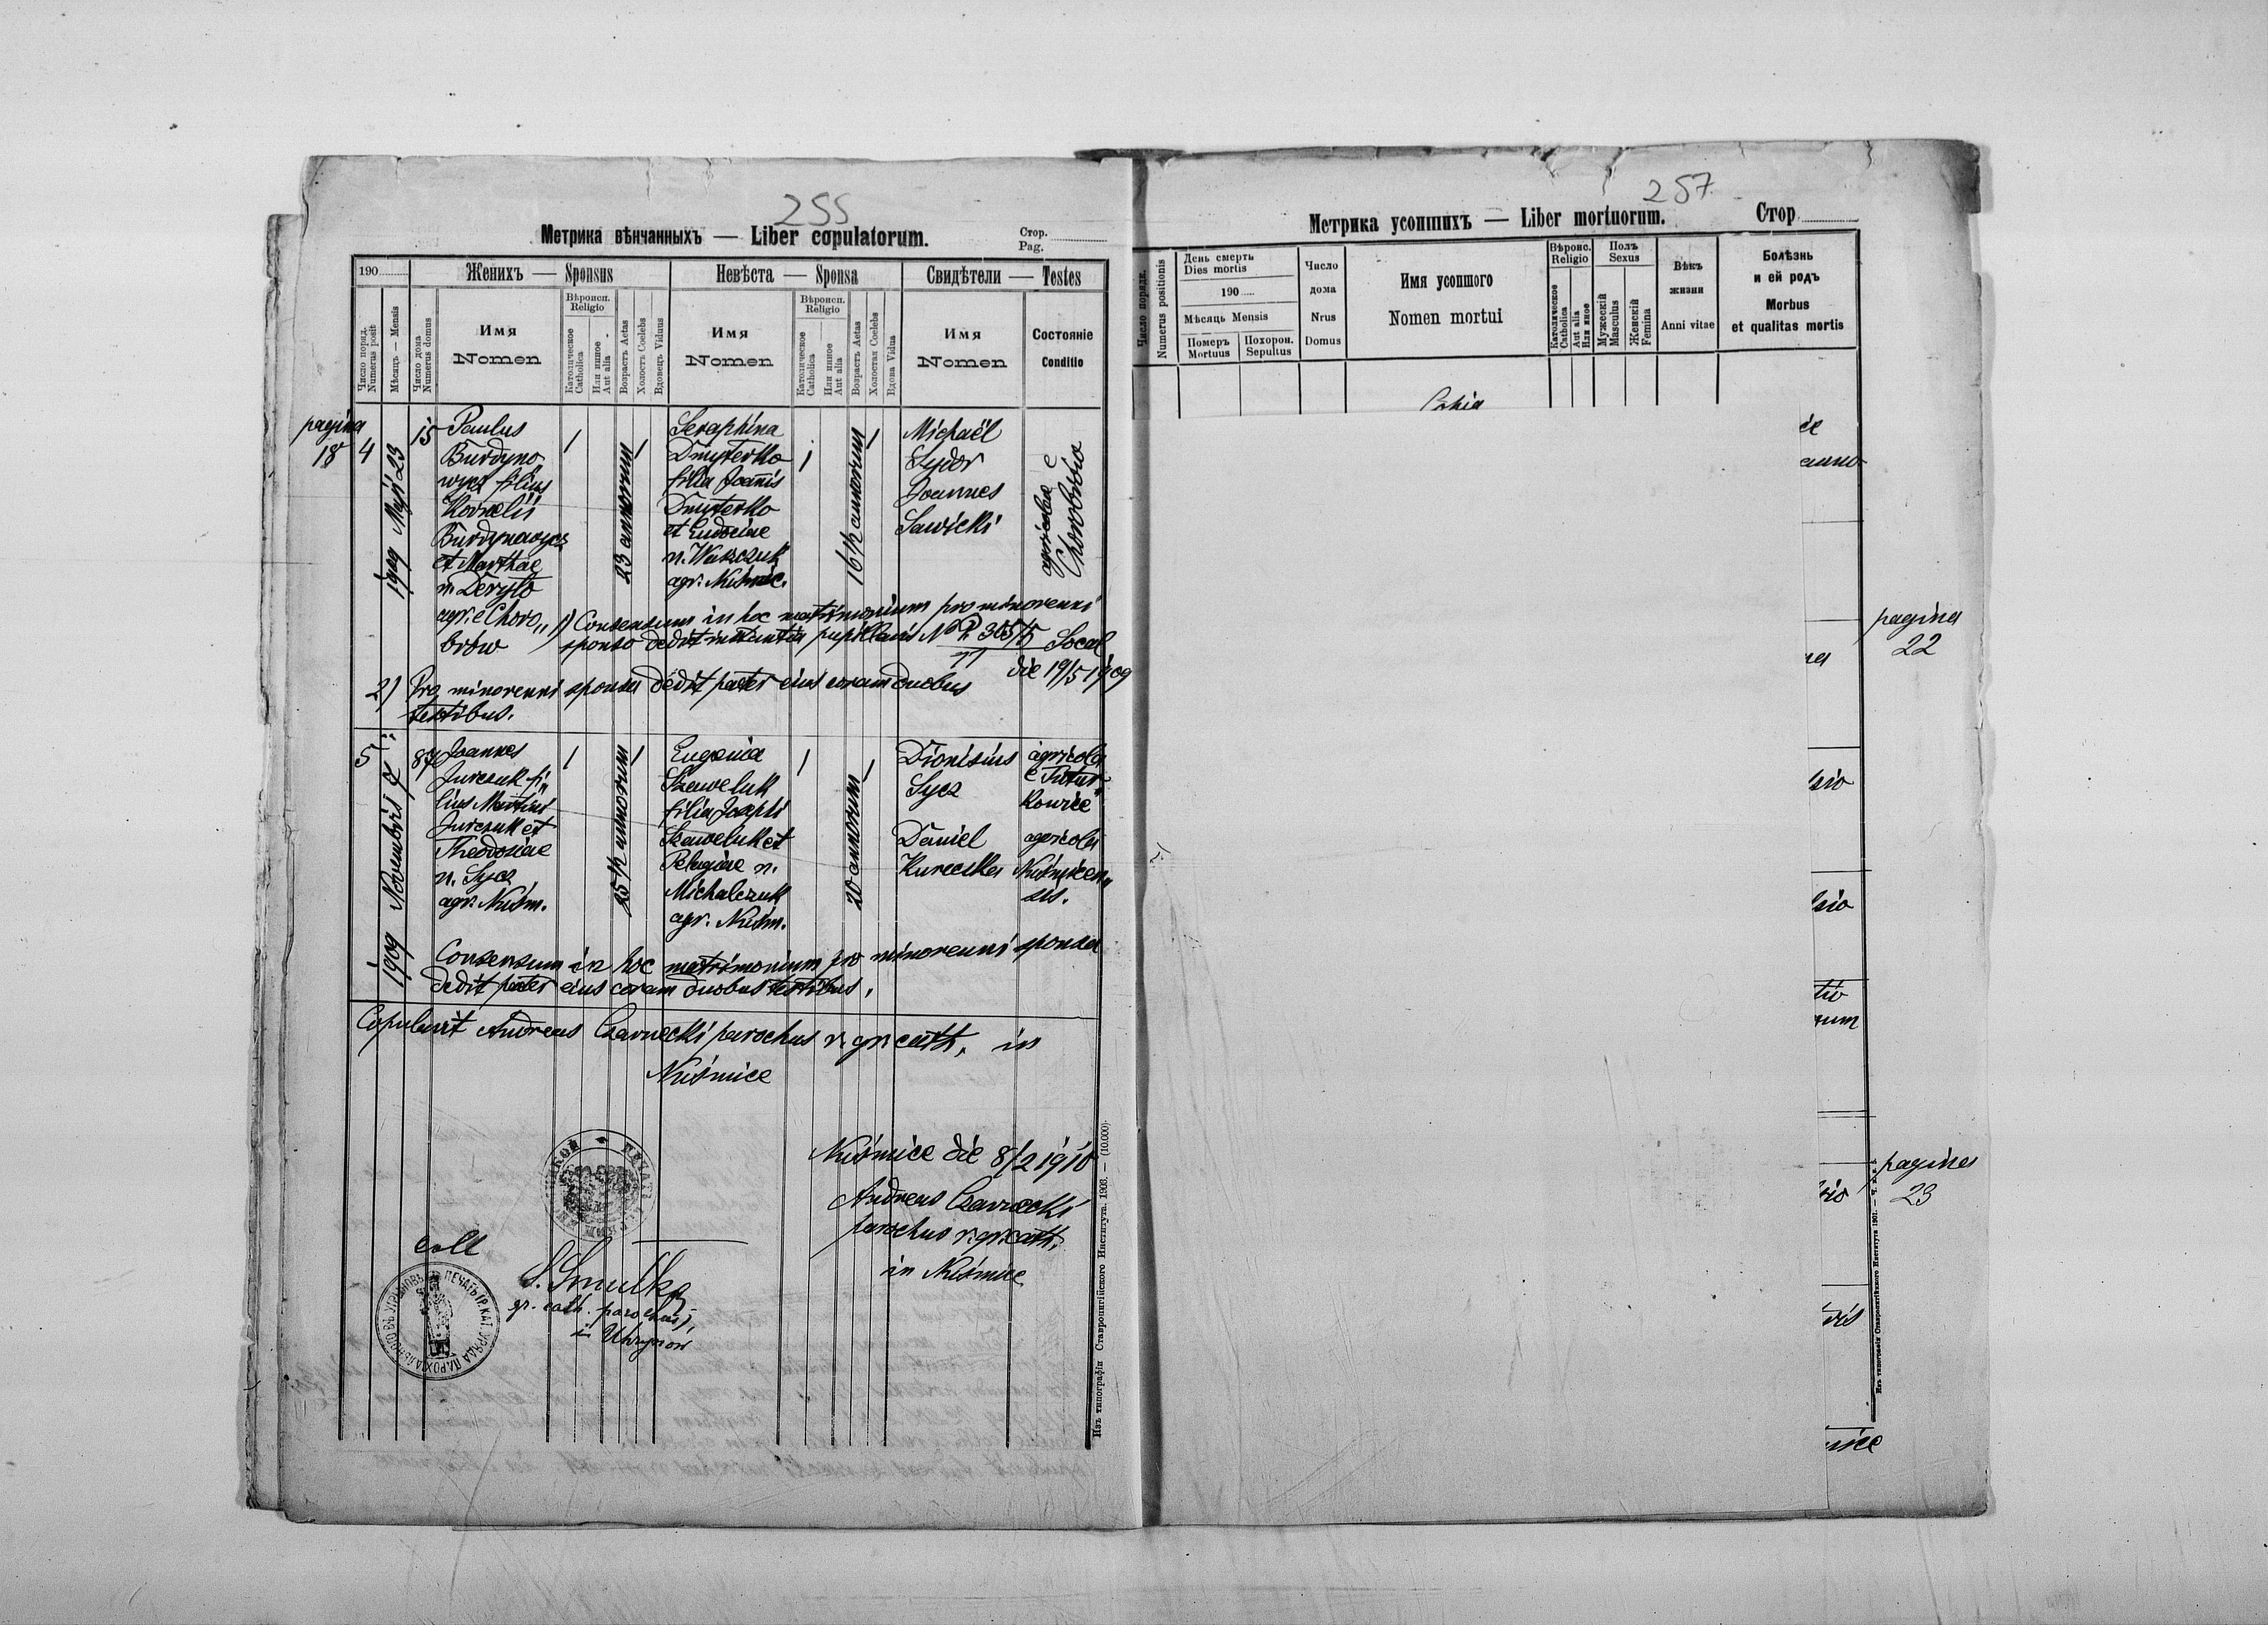 255
Метрика вѣнчанныхъ — Liber copulatorum.
Стор.
Pag.
190
Женихъ — Sponsus
Невѣста — Sponsa
Свидѣтели — Testes
Число поряд.
Numerus posit
Мѣсяць — Mensis
Число дома
Numerus domus
Имя
Nomen
Вѣроисп.
Religio
Католическое
Catholica
Или инное
Aut alia
Возрастъ Aetas
Холостъ Coelebs
Вдовецъ Viduus
Имя
Nomen
Вѣроисп.
Religio
Католическое
Catholica
Или инное
Aut alia
Возрастъ Aetas
Холостая Coelebs
Вдова Vidua
Имя
Nomen
Состояніе
Conditio
pagina
18
4
1909 Maji 23
15
Paulus
Burdyno
wycz filius
Kornelii
Burdynowycz
et Marthae
n. Deryło
agr. e Choro„
brów
23 annorum
Seraphina
Dmyterko
filia Joannis
Dmyterko
et Eudociae
n. Waszczuk
agr. Nuśmic.
16½ annorum
Michaël
Sydor
Joannes
Sawicki
agricolae e
Chorobrów
1) Consensum in hoc matrimonium pro minorenni
sponso dedit instantia pupillaris Nº P. 305/5 Socal
11
die 19/5 1909
2) Pro minorenni sponsa dedit pater eius coram duobus
testibus.
5
1909 Novembris 7
87
Joannes
Jurczuk fi„
lius Martini
Jurczuk et
Theodosiae
n. Sycz
agr. Nuśm.
25½ annorum
Eugenia
Szaweluk
filia Josephi
Szaweluk et
Pelagiae n.
Michalczuk
agr. Nuśm.
20 annorum
Dionisius
Sycz
agricola
e Tutur„
kowice
Daniel
Kurecska
agricola
Nuśmicen„
sis.
Consensum in hoc matrimonium pro minorenni sponsa
dedit pater eius coram duobus testibus.
Copulavit Andreas Czarnecki parochus r. gr. cath. in
Nuśmice
Nuśmice die 8/2 1910
Andreas Czarnecki
parochus r. gr. cath.
in Nuśmice
coll
S. Smulka
gr. cath. parochus
in Uhrynów
ПЕЧАТЬ ГР. КАТ. УРЯДА ПАРОХІАЛЬНОГО ВЪ УГРЫНОВѢ
Изъ типографіи Ставропигійского Института. 1908. — (10.000)
257
Метрика усопшихъ — Liber mortuorum.
Стор
Число порядк.
Numerus positionis
День смерть
Dies mortis
190
Мѣсяць Mensis
Померъ
Mortuus
Похорон.
Sepultus
Число
дома
Nrus
Domus
Имя усопшого
Nomen mortui
Вѣроис.
Religio
Католическое
Catholica
Aut alia
Или иное
Полъ
Sexus
Мужескій
Masculus
Женскій
Femina
Вѣкъ
жизни
Anni vitae
Болѣзнь
и ей родъ
Morbus
et qualitas mortis
pagina
22
pagina
23